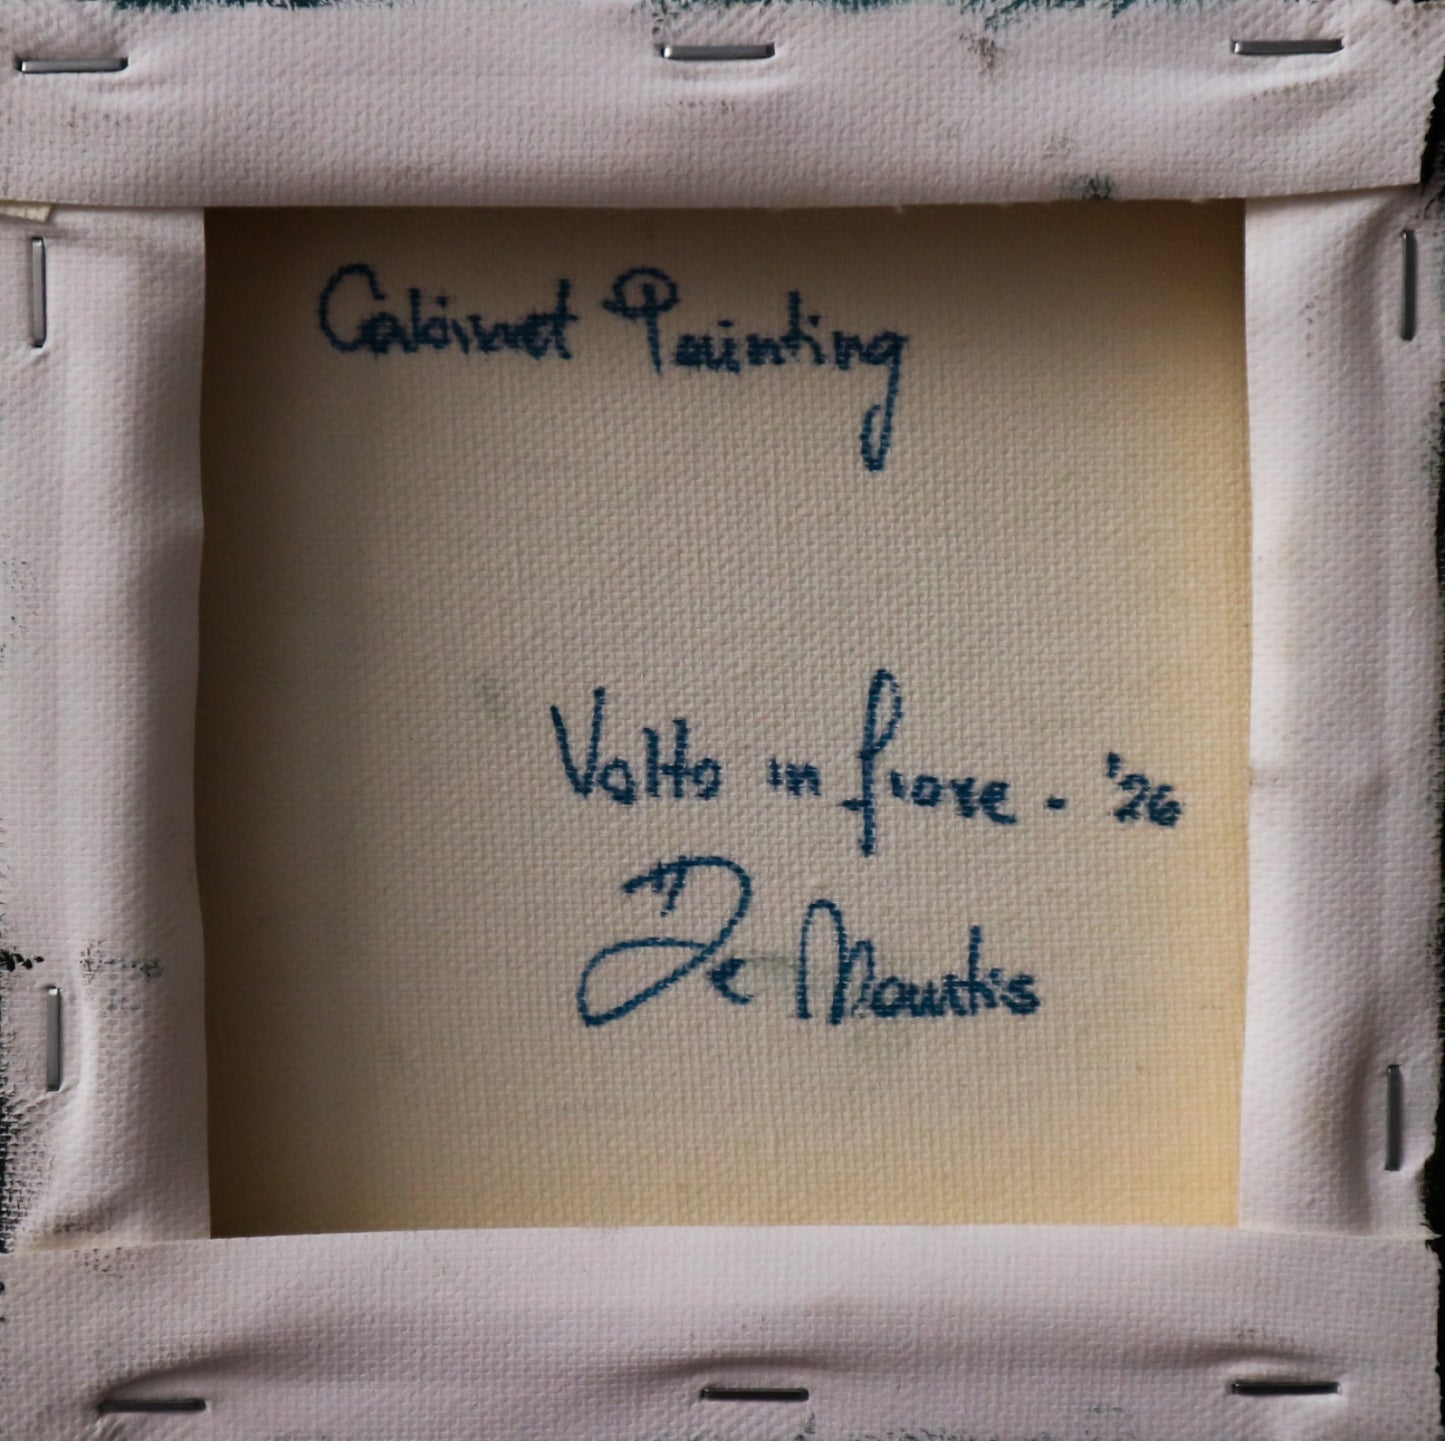 Cabinet Painting
Volto in fiore - '26
De Mautis